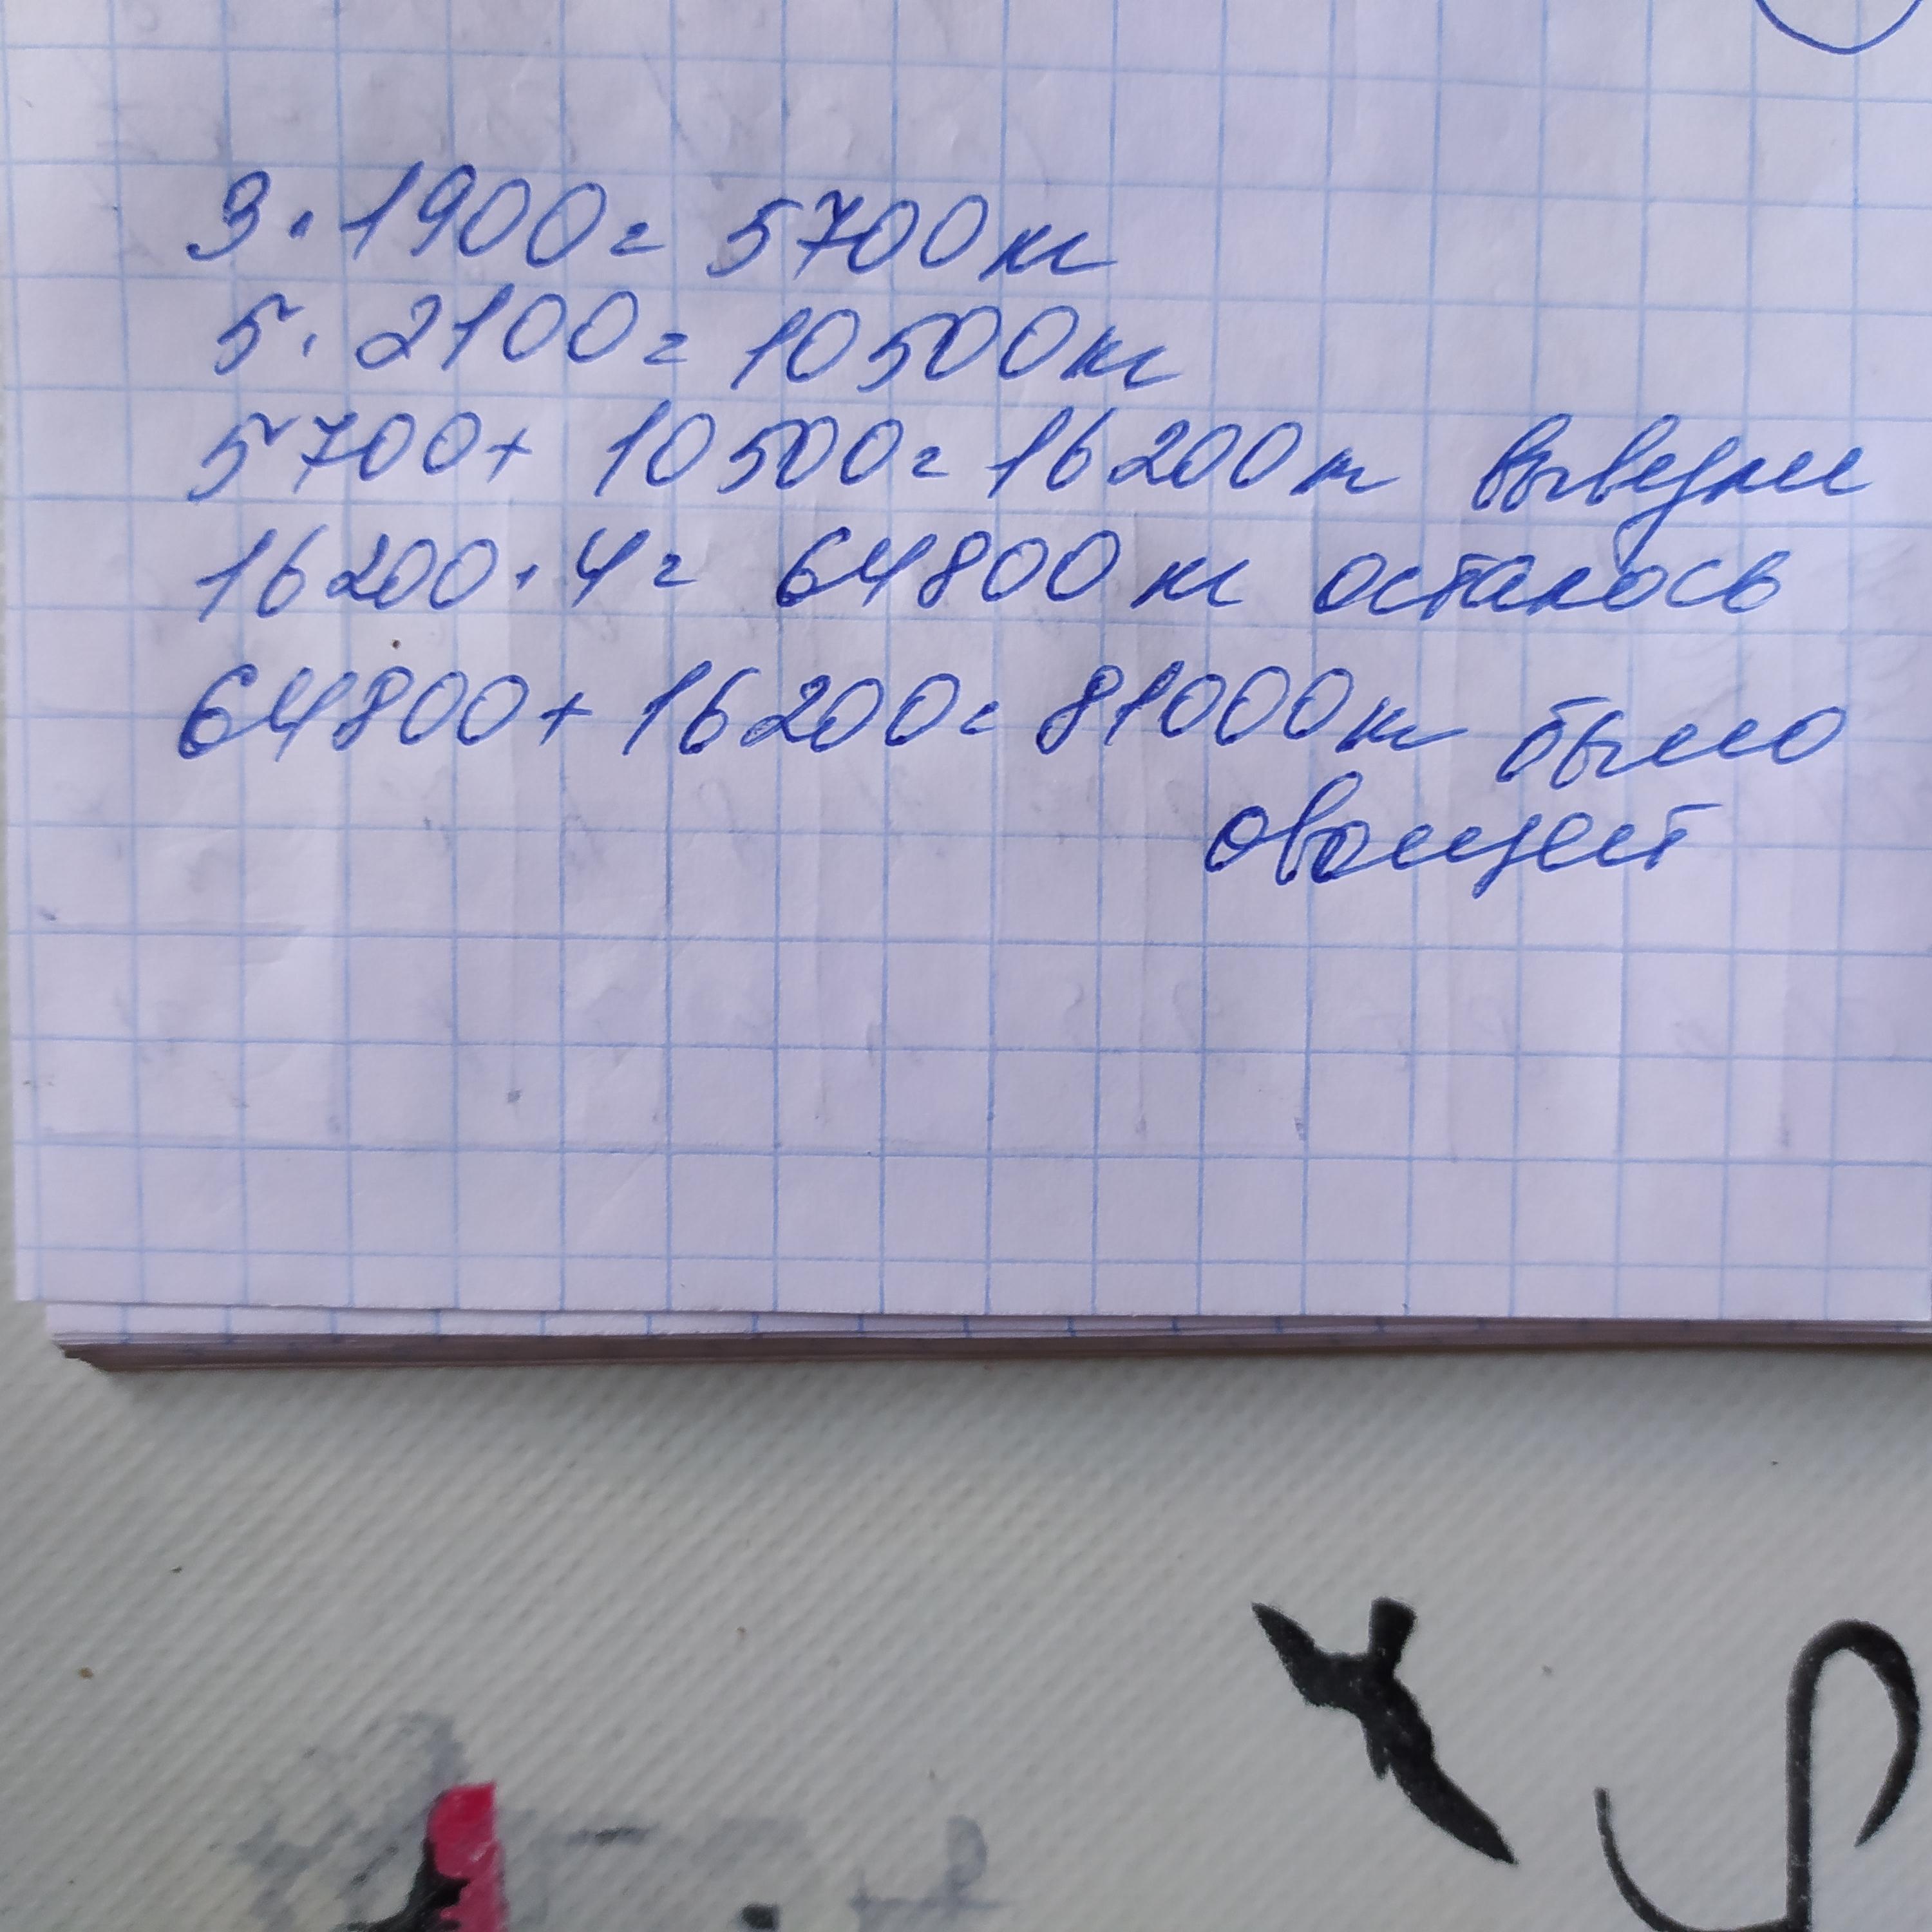 3 · 1900 = 5700 кг
5 · 2100 = 10500 кг
5700 + 10500 = 16200 кг вывезли
16200 · 4 = 64800 кг осталось
64800 + 16200 = 81000 кг было
овощей